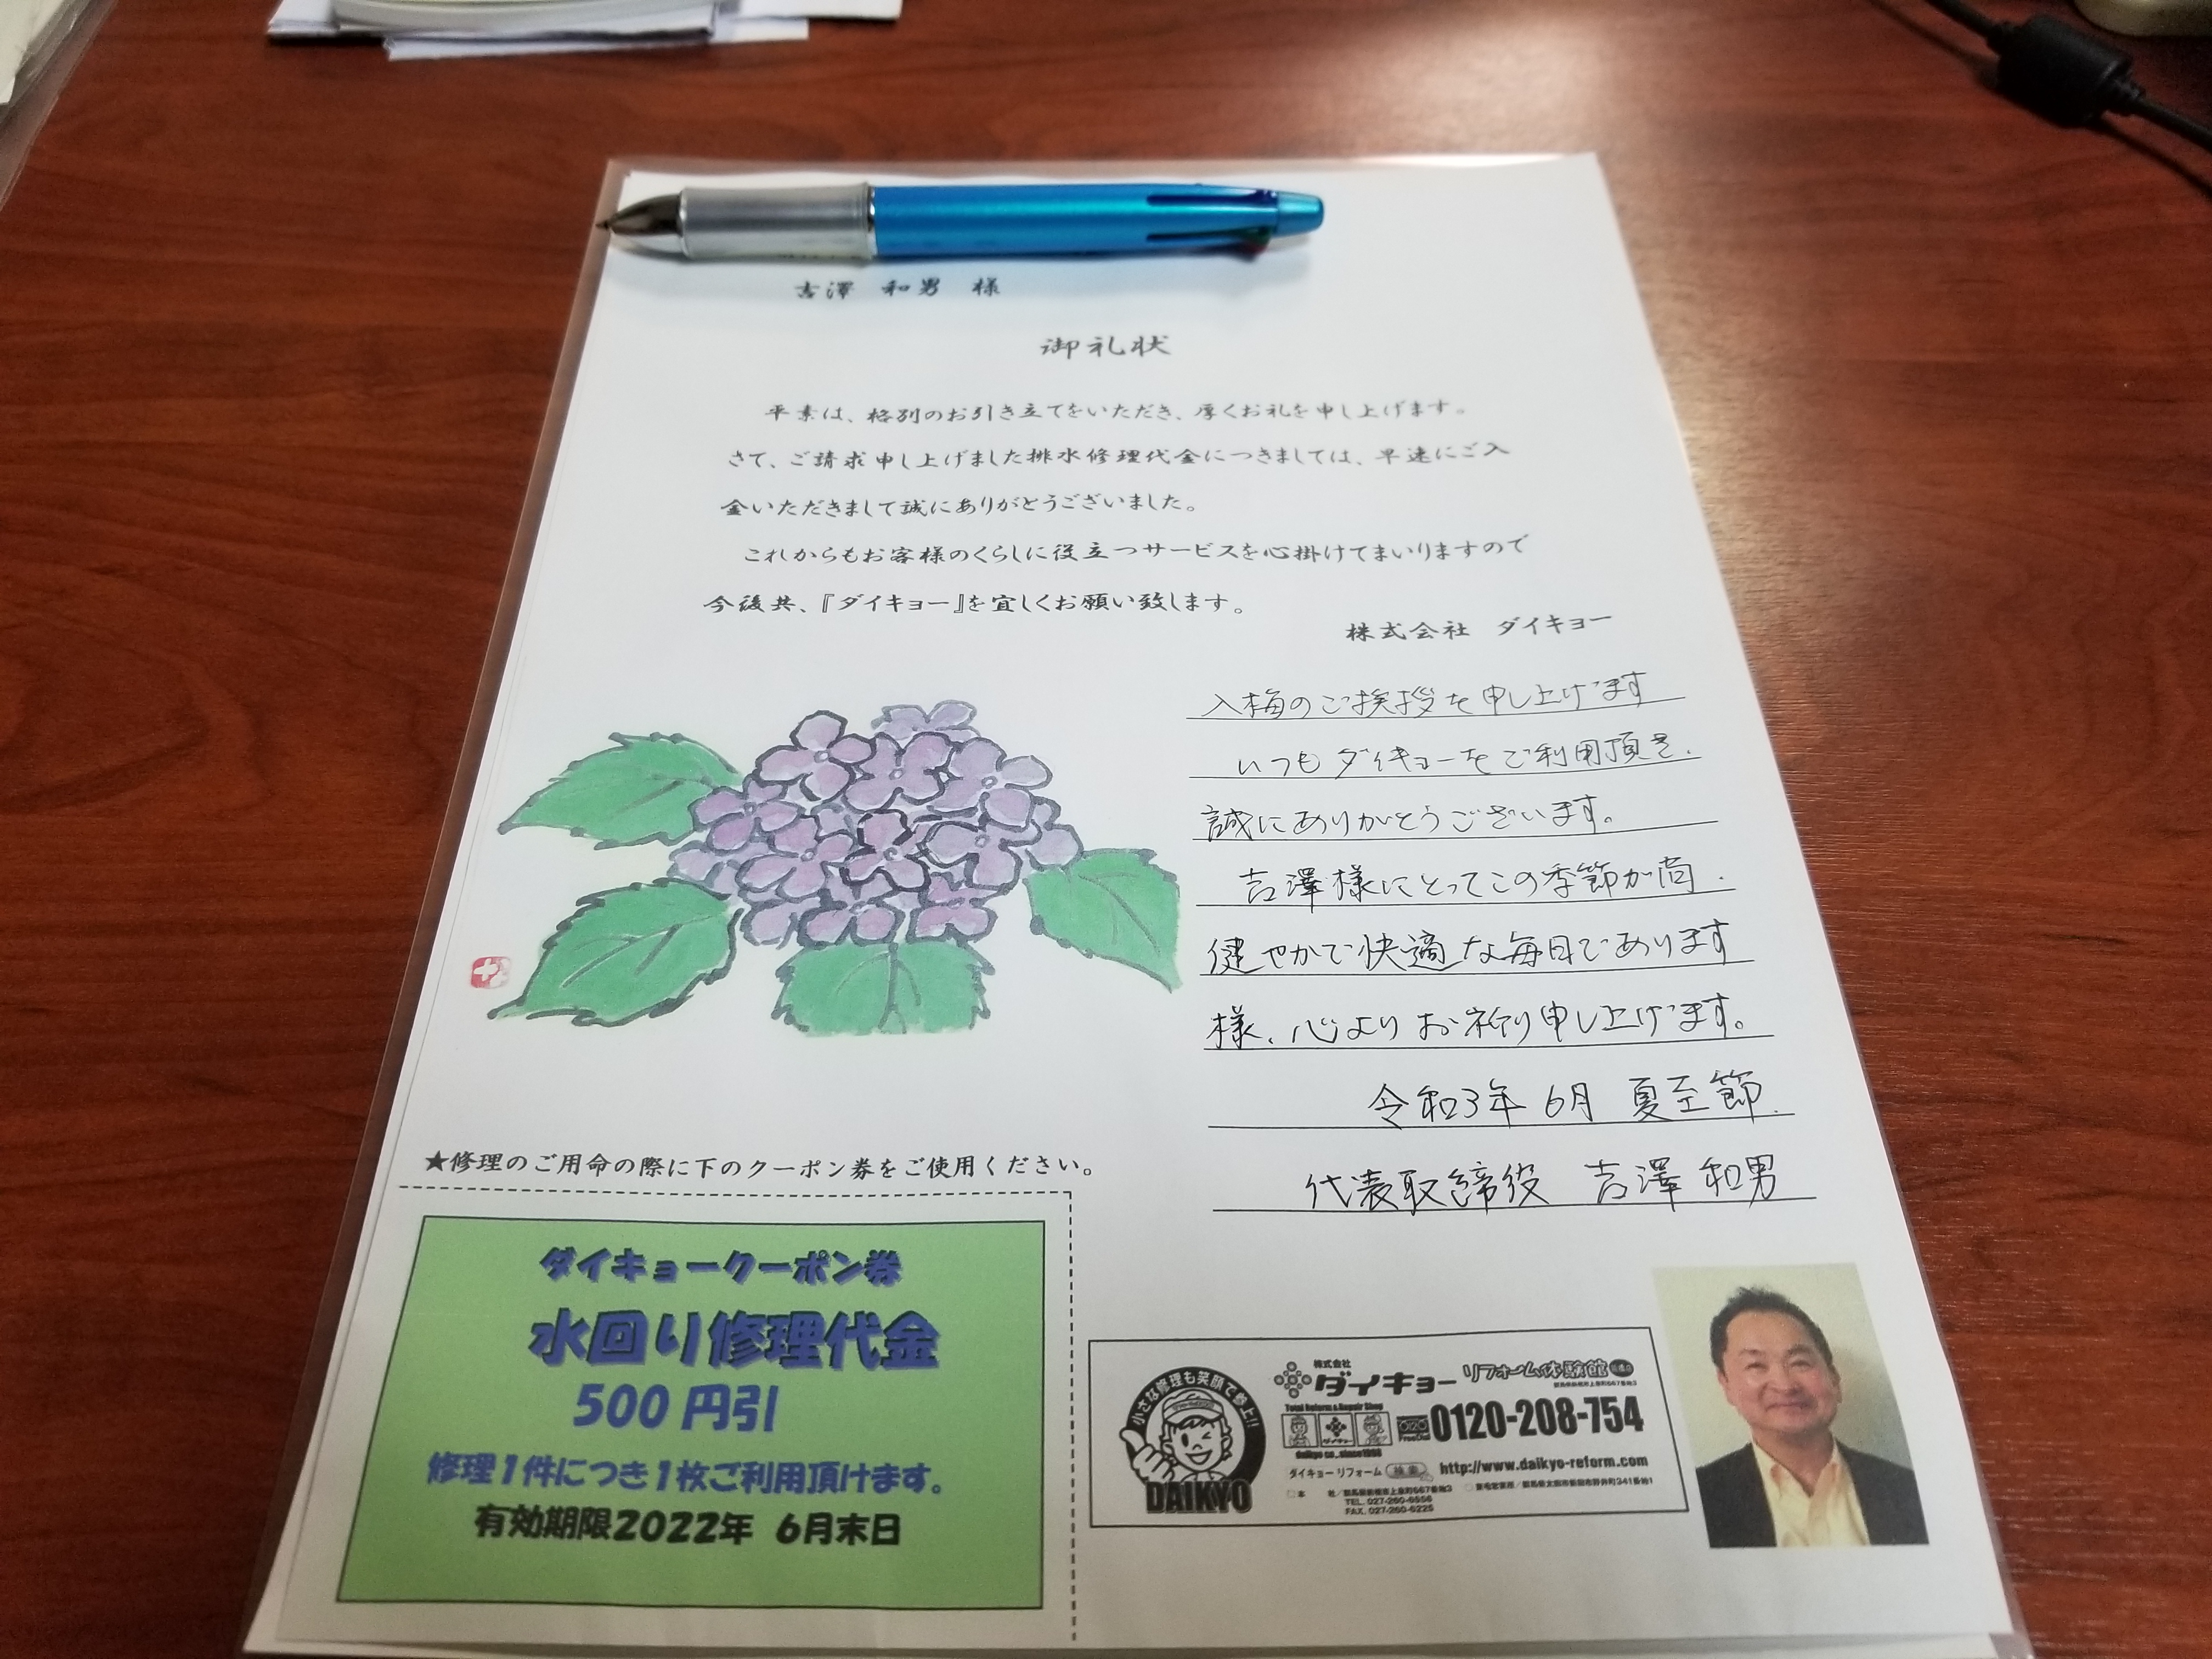 吉澤 和男 様
御礼状
平素は、格別のお引き立てをいただき、厚くお礼を申し上げます。
さて、ご請求申し上げました排水修理代金につきましては、早速にご入
金いただきまして誠にありがとうございました。
これからもお客様のくらしに役立つサービスを心掛けてまいりますので
今後共、『ダイキョー』を宜しくお願い致します。
株式会社 ダイキョー
入梅のご挨拶を申し上げます
いつもダイキョーをご利用頂き、
誠にありがとうございます。
吉澤様にとってこの季節が尚、
健やかで快適な毎日であります
様、心よりお祈り申し上げます。
令和3年 6月 夏至節
代表取締役 吉澤 和男
★修理のご用命の際に下のクーポン券をご使用ください。
ダイキョークーポン券
水回り修理代金
500円引
修理1件につき1枚ご利用頂けます。
有効期限2022年 6月末日
小さな修理も笑顔で参上!!
DAIKYO
株式会社
ダイキョー リフォーム体験館
Total Reform & Repair Shop
FreeDial 0120-208-754
daikyo co.,since1998
ダイキョー リフォーム 検索 http://www.daikyo-reform.com
TEL. 027-260-6556
FAX. 027-260-6225